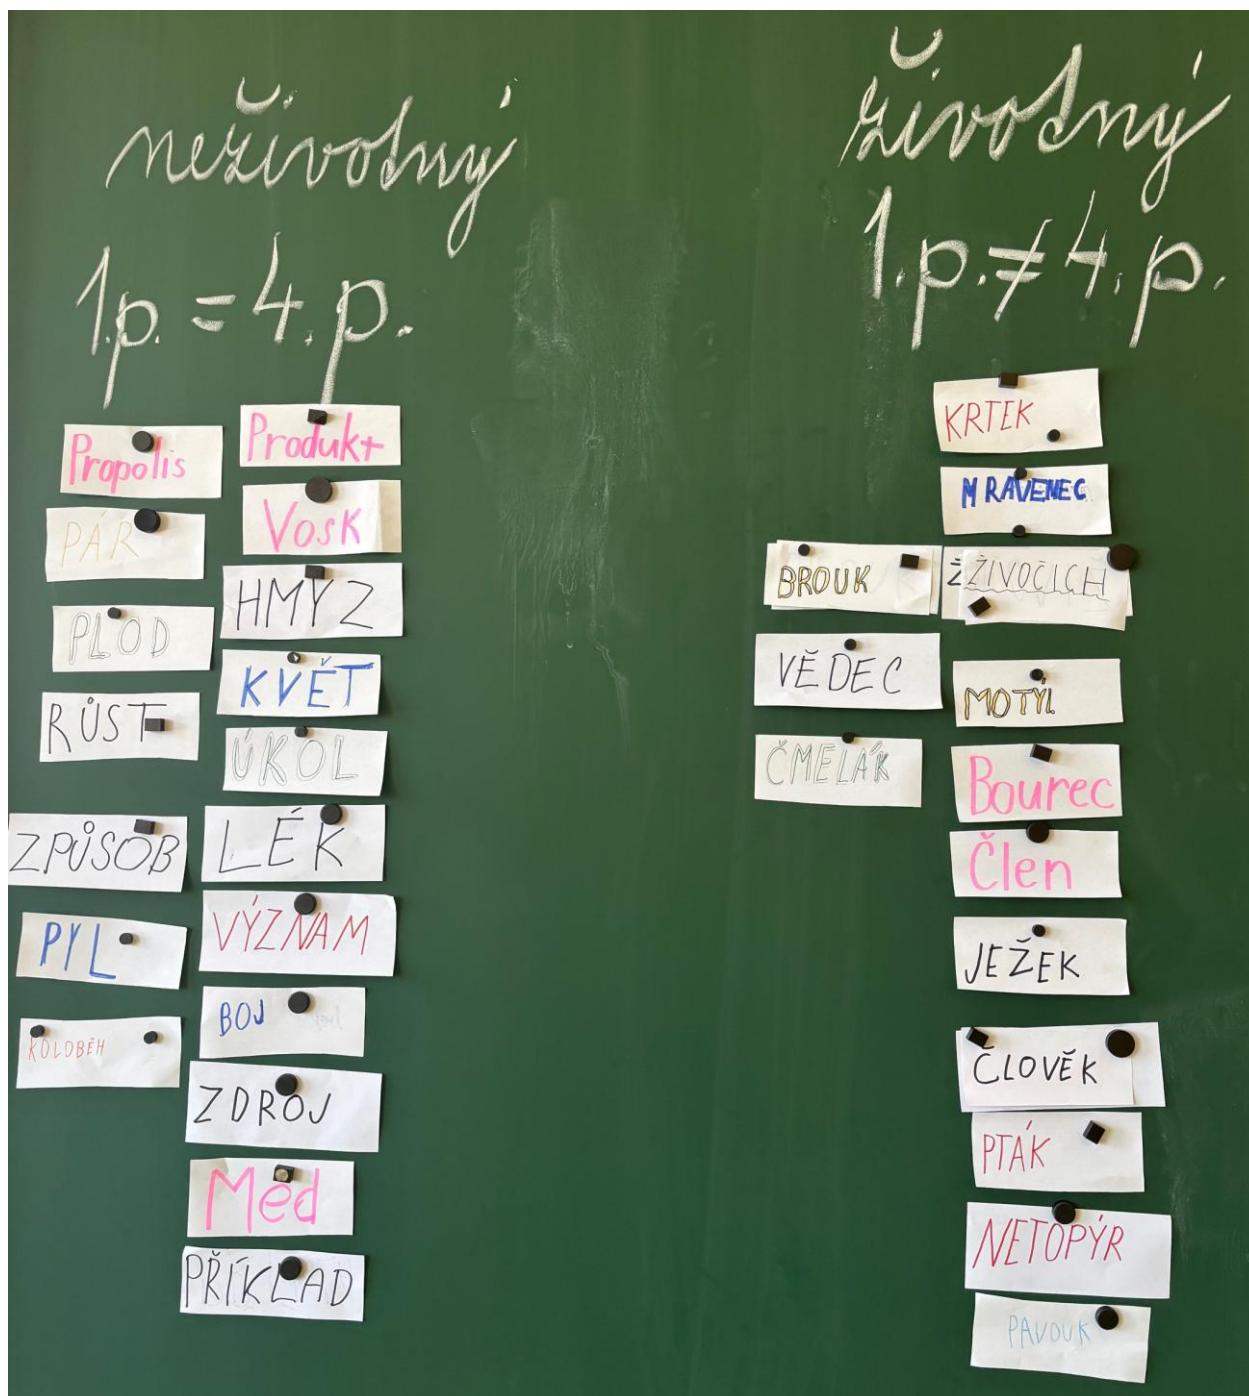 neživotný
1.p. = 4.p.
Propolis
PÁR
PLOD
RŮST
ZPŮSOB
PYL
KOLOBĚH
Produkt
Vosk
HMYZ
KVĚT
ÚKOL
LÉK
VÝZNAM
BOJ
ZDROJ
Med
PŘÍKLAD
životný
1.p. ≠ 4.p.
BROUK
VĚDEC
ČMELÁK
KRTEK
MRAVENEC
Ž ŽIVOČICH
MOTÝL
Bourec
Člen
JEŽEK
ČLOVĚK
PTÁK
NETOPÝR
PAVOUK